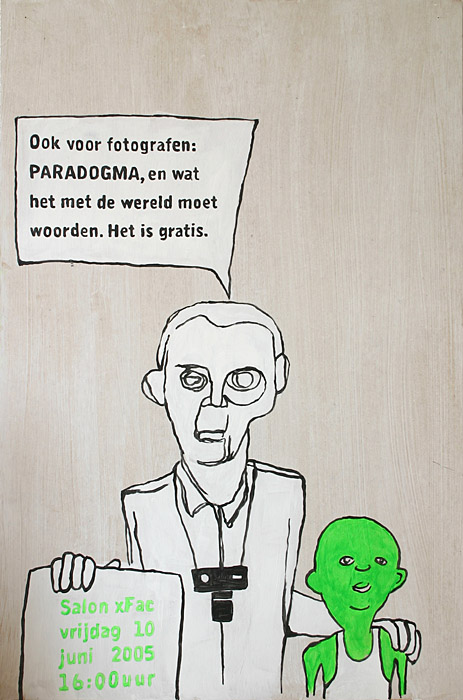 Ook voor fotografen:
PARADOGMA, en wat
het met de wereld moet
woorden. Het is gratis.
Salon xFac
vrijdag 10
juni 2005
16:00uur